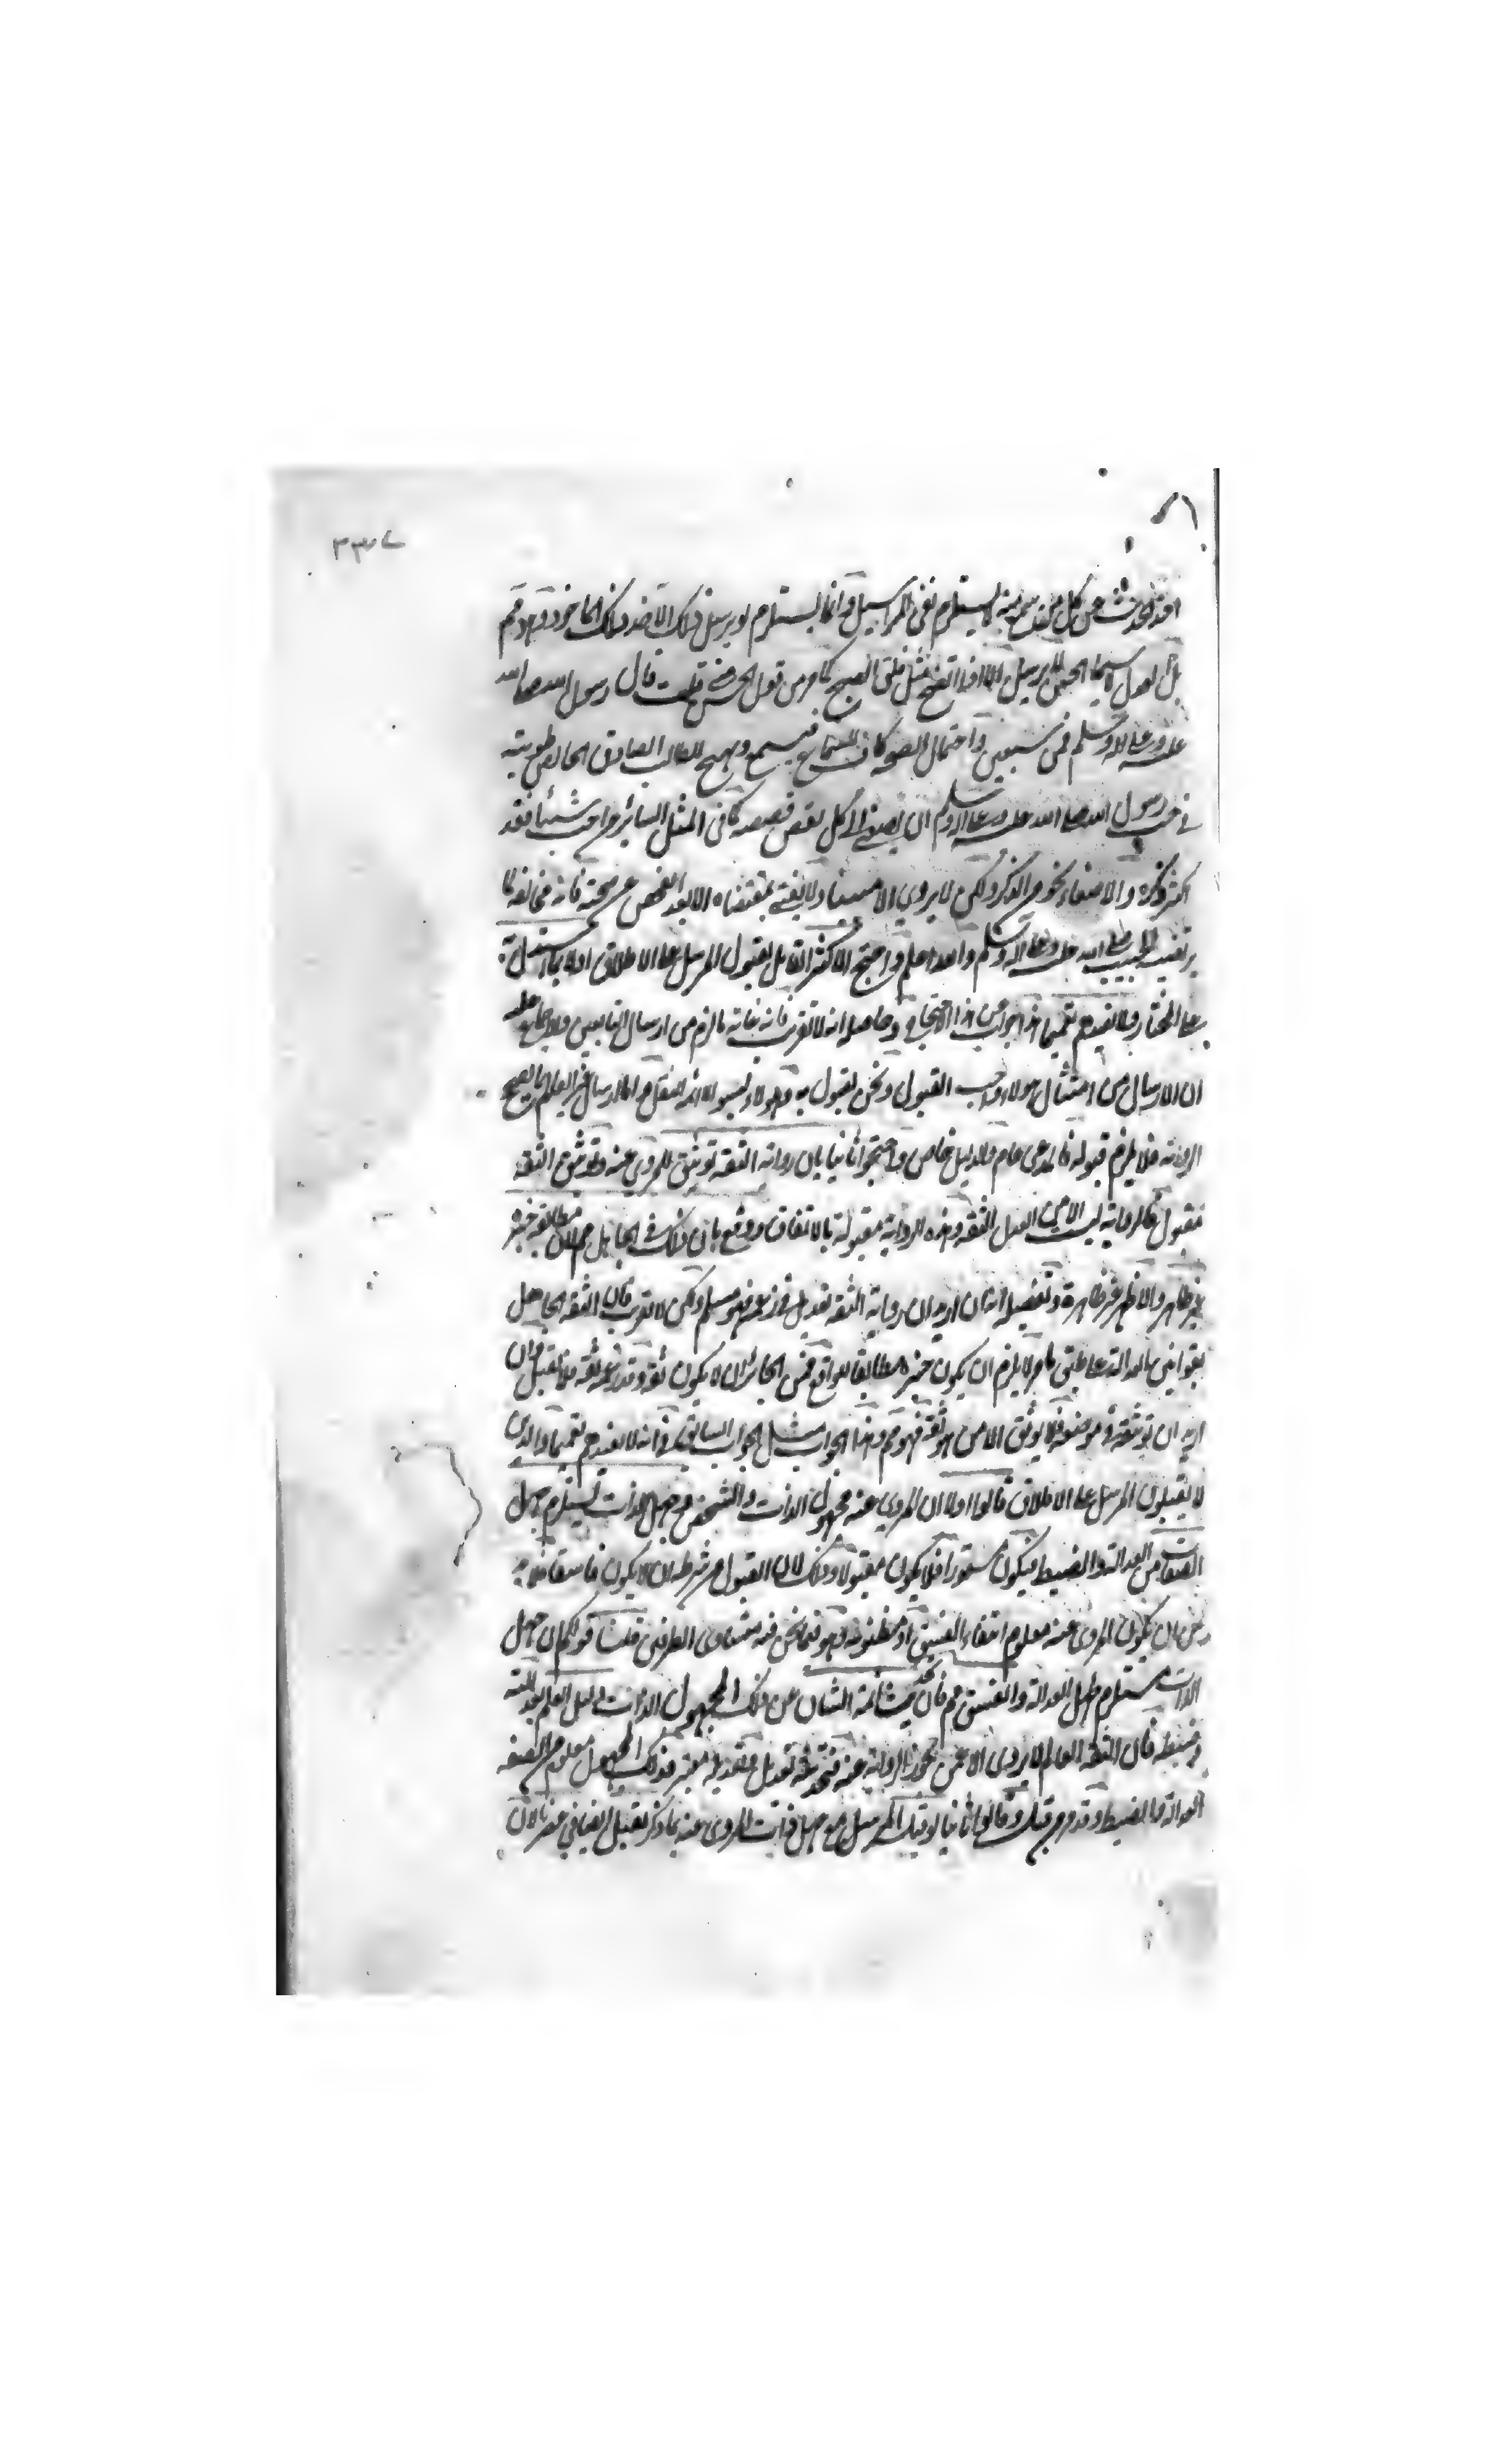 ٣٣٧
اخذ الحديث عن كل من سمع منه لا يستلزم نفى المراسيل وانما يستلزم لو يرسل ذلك الاخذ ذلك الماخوذ وهو مم
بل العدل لا سيما الحسن لا يرسل الا اذا اتضح مثل فلق الصبح كما مر من قول الحسن متى قلت قال رسول الله صلى الله
عليه وعلى اله وسلم فمن سبعين واحتمال الصحة كاف للسماع فيسمع ويهيج للطالب الصادق الخالص طويته
في حب رسول الله صلى الله عليه وعلى اله وسلم ان يصغى الى كل بقصص كما في المثل السائر من احب شيئا فقد
اكثر ذكره والاصغاء نحو من الذكر ولكن لا يروي الاسناد ولا يفتي بمقتضاه الا بعد الفحص عن صحته فانه مخالفة لما
يرتضيه الحبيب صلى الله عليه وعلى اله وسلم والله اعلم واحتج الاكثر القائل بقبول المرسل على الاطلاق اولا بما استدل به
على المختار ولا يفيدهم تعميما هذا جواب عن هذا الاحتجاج وحاصله انه لا تقريب فانه غاية ما لزم من ارسال التابعين
ان الارسال من امثال هولاء واجب القبول ونحن نقول به وهولاء ليسوا الا ائمة النقل واما ارسال غير العالم
الرواية فلا يلزم قبوله فالمدعى عام والدليل خاص واحتجوا ثانيا بان رواية الثقة توثيق للمروي عنه وتوثيق الثقة
مقبول فالرواية ليست الا من العدل الثقة وهذه الرواية مقبولة بالاتفاق ودفع بان ذلك في الجاهل مم لان مطابقة خبره
غير ظاهر والاظهر غير ظاهرة وتفصيله انه ان اريد ان رواية الثقة تعديل في زعمه فهو مسلم ولكن لا تقريب فان الثقة الجاهل
بقوانين العدالة لا يلزم ان يكون خبره مطابقا للواقع فمن الجائز ان لا يكون ثقة وقد زعمه ثقة فلا يقبل وان
اريد ان توثيقه في موضعه فلا يوثق الا من هو ثقة فهو مم وهذا الجواب مثل الجواب السابق في انه لا يفيدهم تعميما والذين
لا يقبلون المرسل على الاطلاق قالوا اولا ان المروي عنه مجهول الذات والشخص وجهل الذات يستلزم جهل
الصفات من العدالة والضبط فيكون مستورا فلا يكون مقبولا وذلك لان القبول من شرطه ان لا يكون فاسقا فلا بد
من ان يكون المروي عنه معلوم انتفاء الفسق او مظنونه وهو فيما نحن فيه متساوى الطرفين قلنا قولكم ان جهل
الذات مستلزم جهل العدالة والفسق مم فان تحديث ائمة الشان عن ذلك المجهول الذات دليل العلم بعدالته
وضبطه فان الثقة العالم لا يروى الا عمن تجوز الرواية عنه فتحديثه تعديل وتعديله معتبر فذلك المجهول معلوم الصفة
العدالة والضبط وقد مر من قبل وقالوا ثانيا لو قبل المرسل مع جهل ذات المروى عنه بما ذكر لقبل الان